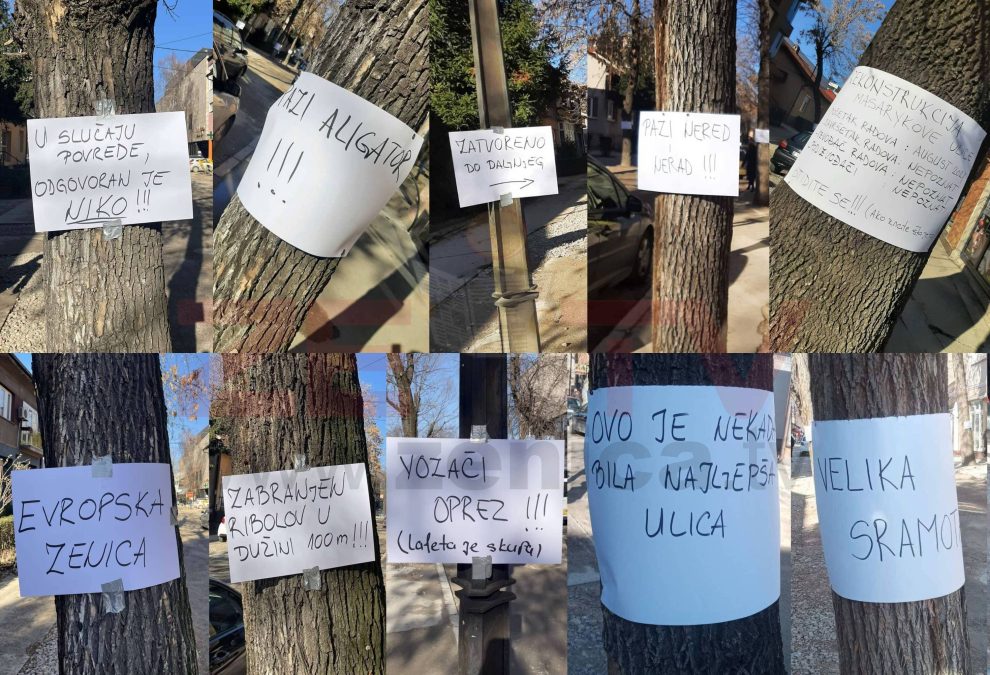 U SLUČAJU
POVREDE,
ODGOVORAN JE
NIKO!!!
PAZI ALIGATOR
!!!
ZATVORENO
DO DALJNJEG
PAZI NERED
I
NERAD !!!
REKONSTRUKCIJA
MASARYKOVE ULICE
RADOVA: AUGUST
RADOVA: NEPOZNAT
RADOVA: NEPOZNAT
NEPOZNAT
SE!!! (Ako
EVROPSKA
ZENICA
ZABRANJEN
RIBOLOV U
DUŽINI 100m!!!
VOZAČI
OPREZ !!!
(Lafeta je skupa)
OVO JE NEKADA
BILA NAJLJEPŠA
ULICA
VELIKA
SRAMOT
www.zenica.tv